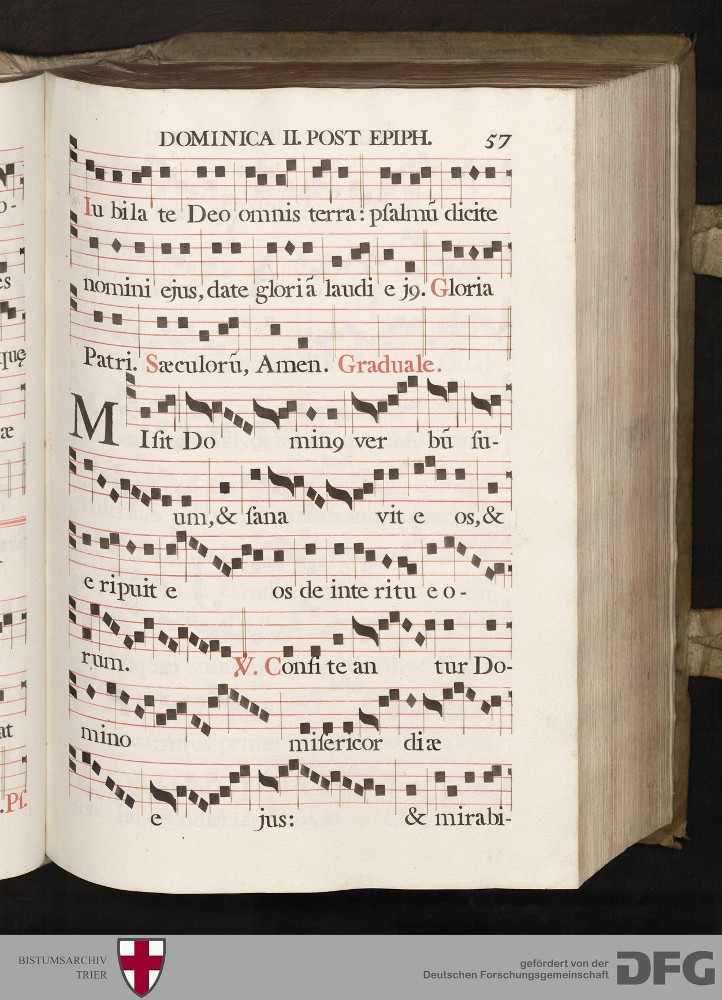 DOMINICA II. POST EPIPH. 57
Iu bila te Deo omnis terra: pſalmū dicite
nomini ejus, date gloriā laudi e jꝯ. Gloria
Patri. Sæculorū, Amen. Graduale.
MIſit Do minꝯ ver bū ſu-
um, & ſana vit e os, &
e ripuit e os de inte ritu e o-
rum. ℣. Confi te an tur Do-
mino miſericor di æ
e jus: & mirabi-
o-
es
quę
æ
at
.Pſ.
BISTUMSARCHIV
TRIER
gefördert von der
Deutschen Forschungsgemeinschaft
DFG